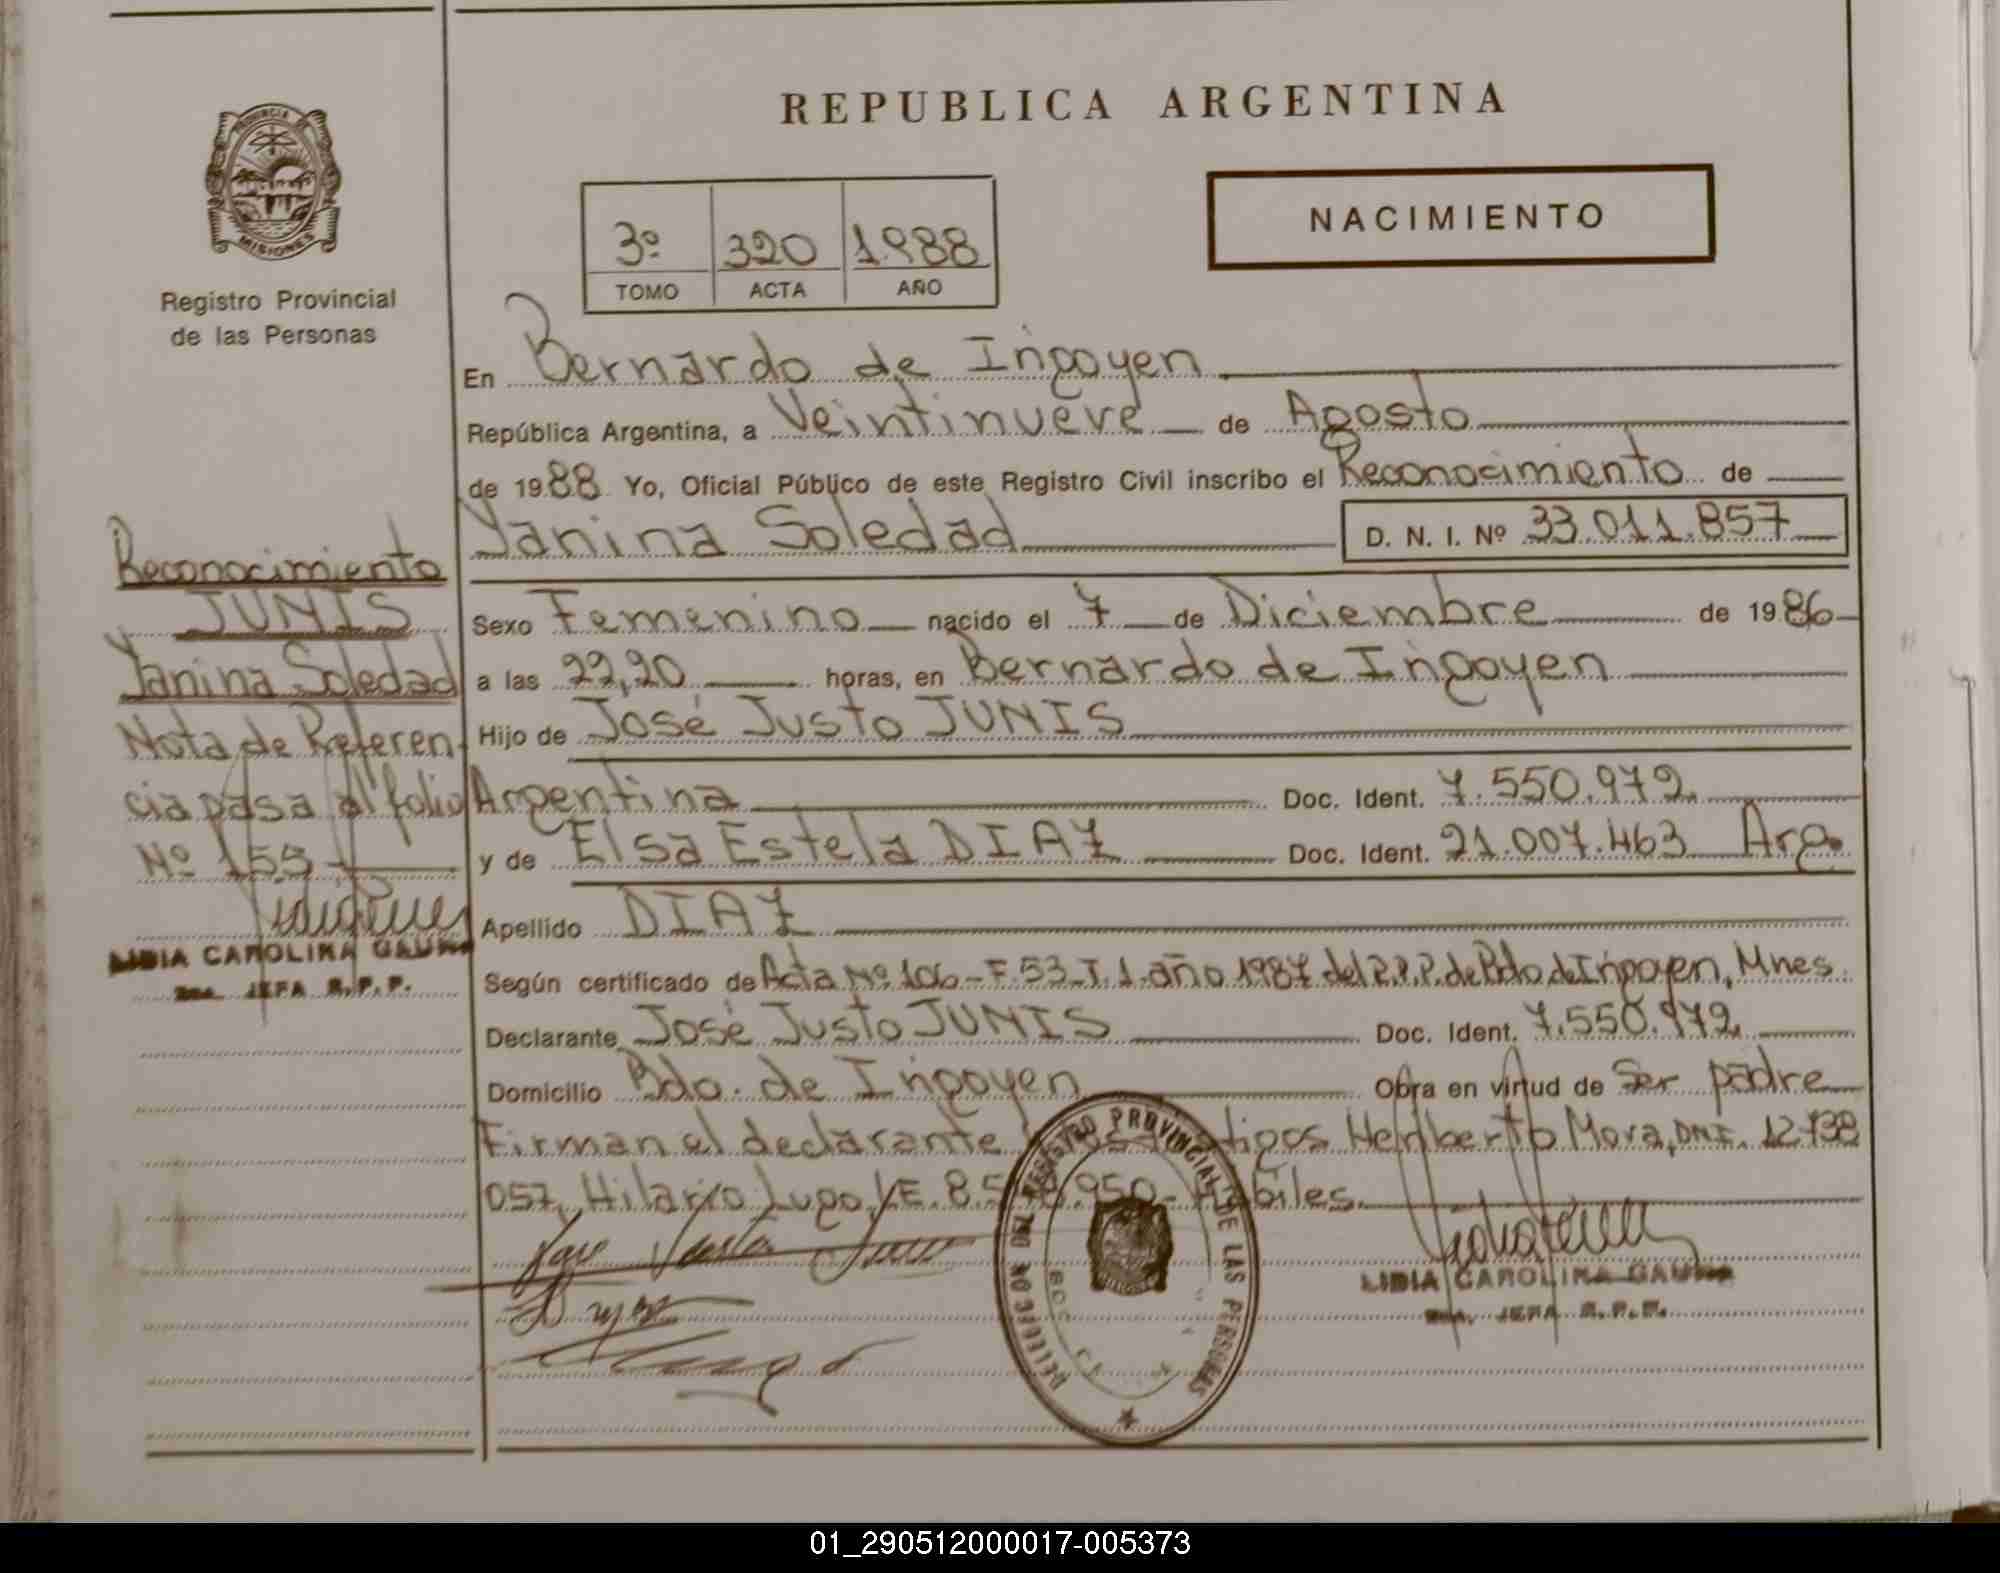 REPUBLICA ARGENTINA
PROVINCIA DE
MISIONES
Registro Provincial
de las Personas
NACIMIENTO
3º 320 1.988
TOMO ACTA AÑO
En Bernardo de Irigoyen
República Argentina, a Veintinueve de Agosto
de 1988 Yo, Oficial Público de este Registro Civil inscribo el Reconocimiento de
Yanina Soledad D. N. I. Nº 33.011.857
Sexo Femenino nacido el 7 de Diciembre de 1986
a las 22,20 horas, en Bernardo de Irigoyen
Hijo de José Justo JUNIS
Argentina Doc. Ident. 7.550.972
y de Elsa Estela DIAZ Doc. Ident. 21.007.463 Arg.
Apellido DIAZ
Según certificado de Acta Nº 106-F.53-T.1-año 1987 del R.P.P. de Bdo de Irigoyen, Mnes.
Declarante José Justo JUNIS Doc. Ident. 7.550.972
Domicilio Bdo. de Irigoyen Obra en virtud de Ser padre
Firman el declarante tigos Heriberto Mora, DNI. 12.738
057, Hilario Lugo, LE. 8.5 .950- Hábiles.
LIDIA CAROLINA GAUNA
JEFA R.P.P.
REGISTRO PROVINCIAL DE LAS PERSONAS
Reconocimiento
JUNIS
Yanina Soledad
Nota de Referen-
cia pasa al folio
Nº 155
LIDIA CAROLINA GAUNA
JEFA R.P.P.
01_290512000017-005373